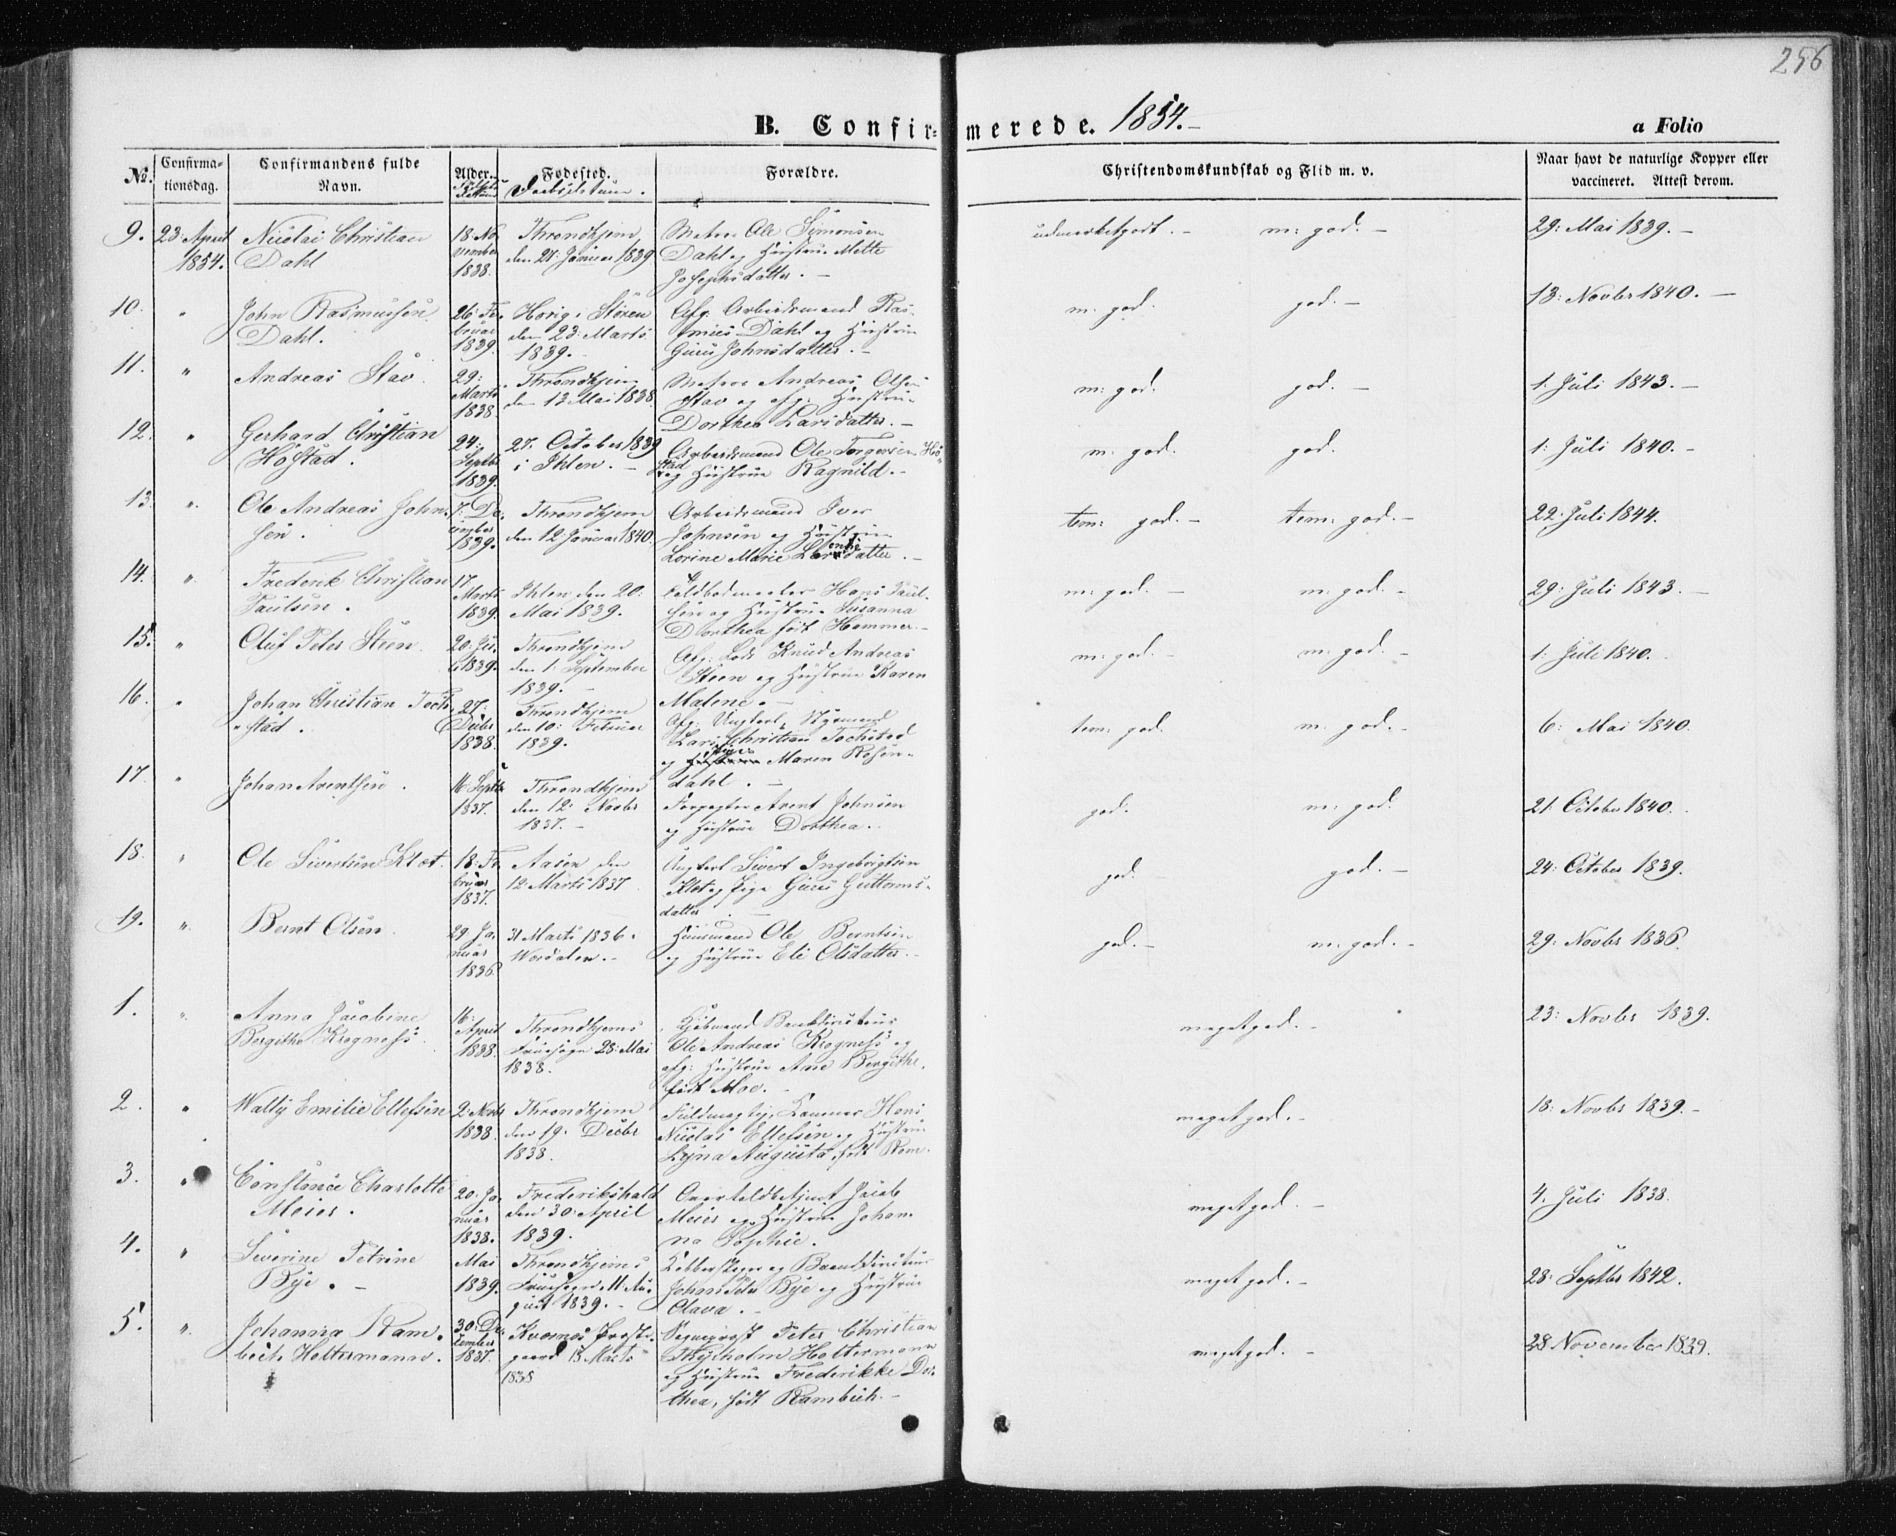 256
B. Confir= merede. 1854.-
a Folio
No.
Confirma-
tionsdag.
Confirmandens fulde
Navn.
Alder.
Fødested.
Forældre.
Christendomskundskab og Flid m. v.
Naar havt de naturlige Kopper eller
vaccineret. Attest derom.
9. 23: April 1854. Nicolai Christian Dahl
18: November 1838.
Throndhjem den 21: Januar 1839
Ole Simonsen Dahl og Hustrue Mette Josephsdatter. -
udmærketgodt. - m: god. -
29: Mai 1839. -
10. " John Rasmussen Dahl.
26: Februar 1839.
Horig i Støren den 23: Marts 1839. -
Afg: Arbeidsmand Rasmus Dahl og Hustrue Guru Johnsdatter. -
m: god. god. -
13: Novbr 1840. -
11. " Andreas Stav.
29: Marts 1838.
Throndhjem den 13 Mai 1838
Andreas Olsen Stav og afg: Hustrue Dorthea Larsdatter. -
m: god. god. -
1: Juli 1843. -
12. " Gerhard Christian Høstad.
24: Septbr 1839.
27. October 1839 i Ihlen. -
Arbeidsmand Ole Torgersen Høstad og Hustrue Ragnild. -
m: god. god.
1: Juli 1840. -
13. " Ole Andreas Johnsen.
7: December 1839.
Throndhjem den 12 Januar 1840.
Arbeidsmand Iver Johnsen og Hustrue Lorine Marie
tem: god. - tem: god. -
22: Juli 1844.
14. " Frederik Christian Paulsen.
17 Marts 1839.
Ihlen den 20: Mai 1839.
Hans Paulsen og Hustrue Susanna Dorthea født Hammer. -
m: god. - m: god. -
29: Juli 1843. -
15. " Oluf Peter Steen.
20: Juli 1839.
Throndhjem den 1: September 1839. -
Afg: Lods Knud Andreas Steen og Hustrue Karen Malene. -
m: god. - m: god. -
1: Juli 1840.
16. " Johan Christian Tochstad.
27: Decbr 1838.
Throndhjem den 10: Februar 1839.
Afg: Ungkarl, Styrmand Lars Christian Tochstad og Maren Rosendahl. -
tem: god. m: god. -
6: Mai 1840.
17. " Johan Arentsen.
16 Septbr 1837.
Throndhjem den 12: Novbr 1837. -
Forpagter Arent Johnsen og Hustrue Dorthea. -
god. m: god.
21: October 1840.
18. " Ole Sivertsen Klæt.
18: Februar 1837.
Aasen den 12 Marts 1837.
Ungkarl Sivert Ingebrigtsen Klæt og Pige Guru Guttormsdatter. -
god. god. -
24: October 1839.
19. " Bernt Olsen.
29: Januar 1836
31 Marts 1836. Værdalen. -
Huusmand Ole Berntsen og Hustrue Eli Olsdatter. -
god. - m: god. -
29: Novbr 1836.
1. " Anna Jacobine Bergithe Krogness.
16: April 1838.
Throndhjems Fruesogn 28: Mai 1838.
Kjøbmand Ole Andreas Krogness og afg: Hustrue Ane Bergithe, født Moe. -
megetgod. -
23: Novbr 1839.
2. " Wally Emilie Ellefsen
2: Novbr 1838.
Throndhjem den 19: Decbr 1838.
Fuldmægtig, Hans Nicolai Ellefsen og Hustrue Augusta, født
megetgod. -
18: Novbr 1839. -
3. " Constance Charlotte Meier.
20. Januar 1838.
Frederikshald den 30: April 1839.
Jacob Meier og Hustrue Johanna Sophie.
megetgod. -
4. Juli 1838.
4. " Severine Petrine Bye. -
Mai 1839.
Throndhjems Fruesogn 11 August 1839. -
Bye og Hustrue Olava. -
megetgod. -
28: Septbr 1842.
5. " Johanna Rambech Holtermann.
30: December 1837.
Kværnes Præstegaard 13 Marts 1838
Sogneprest Peter Christian Holtermann og Hustrue Frederikke Dorthea, født Rambech. -
megetgod. -
28 November 1839.